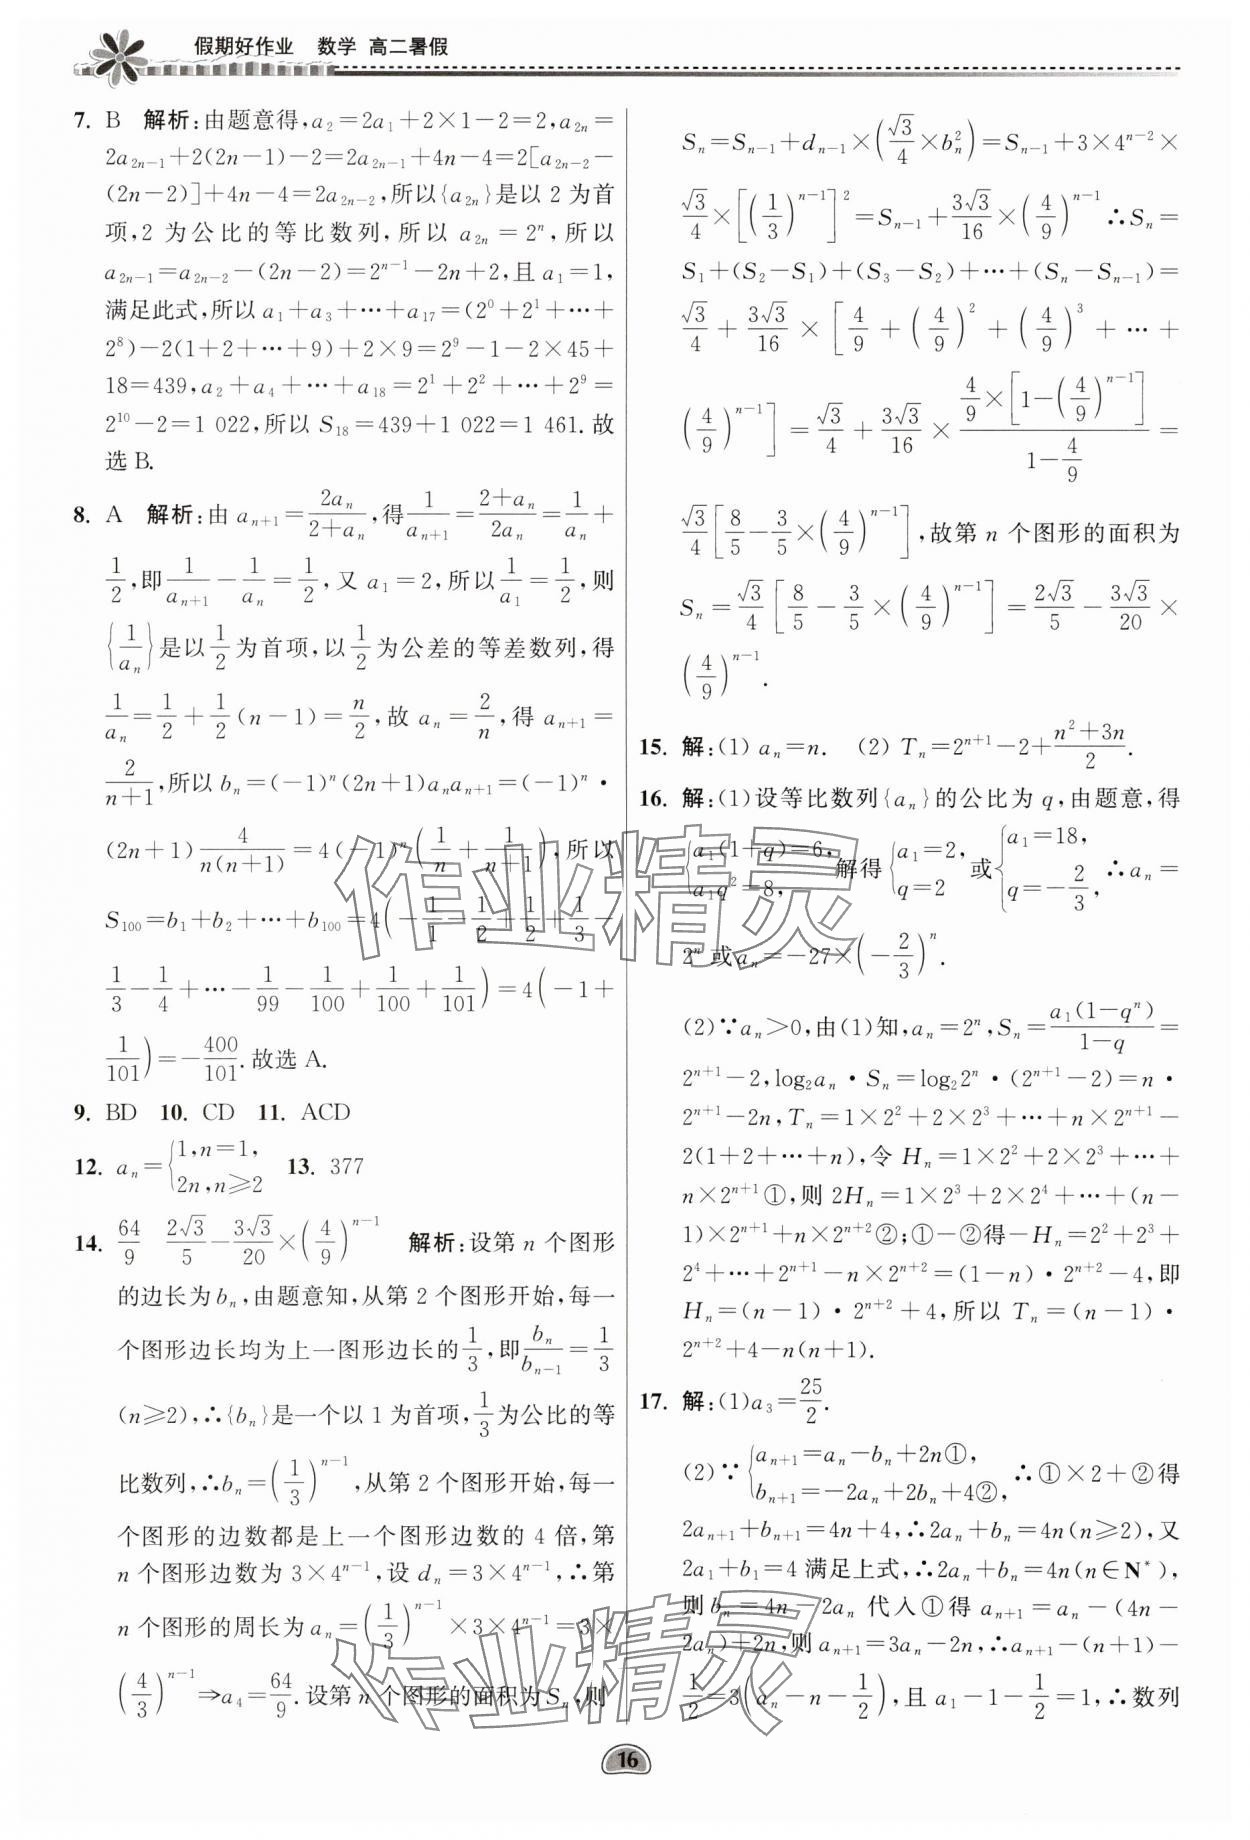 假期好作业 数学 高二暑假
7. B 解析:由题意得,a₂=2a₁+2×1-2=2,a₂ₙ=
2a₂ₙ₋₁+2(2n-1)-2=2a₂ₙ₋₁+4n-4=2[a₂ₙ₋₂-
(2n-2)]+4n-4=2a₂ₙ₋₂,所以{a₂ₙ}是以 2 为首
项,2 为公比的等比数列,所以 a₂ₙ=2ⁿ,所以
a₂ₙ₋₁=a₂ₙ₋₂-(2n-2)=2ⁿ⁻¹-2n+2,且 a₁=1,
满足此式,所以 a₁+a₃+⋯+a₁₇=(2⁰+2¹+⋯+
2⁸)-2(1+2+⋯+9)+2×9=2⁹-1-2×45+
18=439,a₂+a₄+⋯+a₁₈=2¹+2²+⋯+2⁹=
2¹⁰-2=1 022,所以 S₁₈=439+1 022=1 461.故
选 B.
8. A 解析:由 aₙ₊₁=2aₙ/(2+aₙ),得1/aₙ₊₁=(2+aₙ)/2aₙ=1/aₙ+
1/2,即1/aₙ₊₁-1/aₙ=1/2,又 a₁=2,所以1/a₁=1/2,则
{1/aₙ}是以1/2为首项,以1/2为公差的等差数列,得
1/aₙ=1/2+1/2(n-1)=n/2,故 aₙ=2/n,得 aₙ₊₁=
2/(n+1),所以 bₙ=(-1)ⁿ(2n+1)aₙaₙ₊₁=(-1)ⁿ·
(2n+1)4/(n(n+1))=4(-1)ⁿ(1/n+1/(n+1)),所以
S₁₀₀=b₁+b₂+⋯+b₁₀₀=4(-1/1-1/2+1/2+1/3-
1/3-1/4+⋯-1/99-1/100+1/100+1/101)=4(-1+
1/101)=-400/101.故选 A.
9. BD 10. CD 11. ACD
12. aₙ={1,n=1, 2n,n≥2 13. 377
14. 64/9 2√3/5-3√3/20×(4/9)ⁿ⁻¹ 解析:设第 n 个图形
的边长为 bₙ,由题意知,从第 2 个图形开始,每一
个图形边长均为上一图形边长的1/3,即bₙ/bₙ₋₁=1/3
(n≥2),∴{bₙ}是一个以 1 为首项,1/3为公比的等
比数列,∴bₙ=(1/3)ⁿ⁻¹,从第 2 个图形开始,每一
个图形的边数都是上一个图形边数的 4 倍,第
n 个图形边数为 3×4ⁿ⁻¹,设 dₙ=3×4ⁿ⁻¹,∴第
n 个图形的周长为 aₙ=(1/3)ⁿ⁻¹×3×4ⁿ⁻¹=3×
(4/3)ⁿ⁻¹⇒a₄=64/9.设第 n 个图形的面积为 Sₙ,则
Sₙ=Sₙ₋₁+dₙ₋₁×(√3/4×bₙ²)=Sₙ₋₁+3×4ⁿ⁻²×
√3/4×[(1/3)ⁿ⁻¹]²=Sₙ₋₁+3√3/16×(4/9)ⁿ⁻¹∴Sₙ=
S₁+(S₂-S₁)+(S₃-S₂)+⋯+(Sₙ-Sₙ₋₁)=
√3/4+3√3/16×[4/9+(4/9)²+(4/9)³+⋯+
(4/9)ⁿ⁻¹]=√3/4+3√3/16×(4/9×[1-(4/9)ⁿ⁻¹])/(1-4/9)=
√3/4[8/5-3/5×(4/9)ⁿ⁻¹],故第 n 个图形的面积为
Sₙ=√3/4[8/5-3/5×(4/9)ⁿ⁻¹]=2√3/5-3√3/20×
(4/9)ⁿ⁻¹.
15. 解:(1) aₙ=n. (2) Tₙ=2ⁿ⁺¹-2+(n²+3n)/2.
16. 解:(1)设等比数列{aₙ}的公比为 q,由题意,得
{a₁(1+q)=6, a₁q²=8, 解得{a₁=2, q=2 或{a₁=18, q=-2/3, ∴aₙ=
2ⁿ 或 aₙ=-27×(-2/3)ⁿ.
(2)∵aₙ>0,由(1)知,aₙ=2ⁿ,Sₙ=a₁(1-qⁿ)/(1-q)=
2ⁿ⁺¹-2,log₂aₙ·Sₙ=log₂2ⁿ·(2ⁿ⁺¹-2)=n·
2ⁿ⁺¹-2n,Tₙ=1×2²+2×2³+⋯+n×2ⁿ⁺¹-
2(1+2+⋯+n),令 Hₙ=1×2²+2×2³+⋯+
n×2ⁿ⁺¹①,则 2Hₙ=1×2³+2×2⁴+⋯+(n-
1)×2ⁿ⁺¹+n×2ⁿ⁺²②;①-②得-Hₙ=2²+2³+
2⁴+⋯+2ⁿ⁺¹-n×2ⁿ⁺²=(1-n)·2ⁿ⁺²-4,即
Hₙ=(n-1)·2ⁿ⁺²+4,所以 Tₙ=(n-1)·
2ⁿ⁺²+4-n(n+1).
17. 解:(1)a₃=25/2.
(2)∵{aₙ₊₁=aₙ-bₙ+2n①, bₙ₊₁=-2aₙ+2bₙ+4②, ∴①×2+②得
2aₙ₊₁+bₙ₊₁=4n+4,∴2aₙ+bₙ=4n(n≥2),又
2a₁+b₁=4 满足上式,∴2aₙ+bₙ=4n(n∈N*),
则 bₙ=4n-2aₙ 代入①得 aₙ₊₁=aₙ-(4n-
2aₙ)+2n,则 aₙ₊₁=3aₙ-2n,∴aₙ₊₁-(n+1)-
1/2=3(aₙ-n-1/2),且 a₁-1-1/2=1,∴数列
16
作业精灵
作业精灵